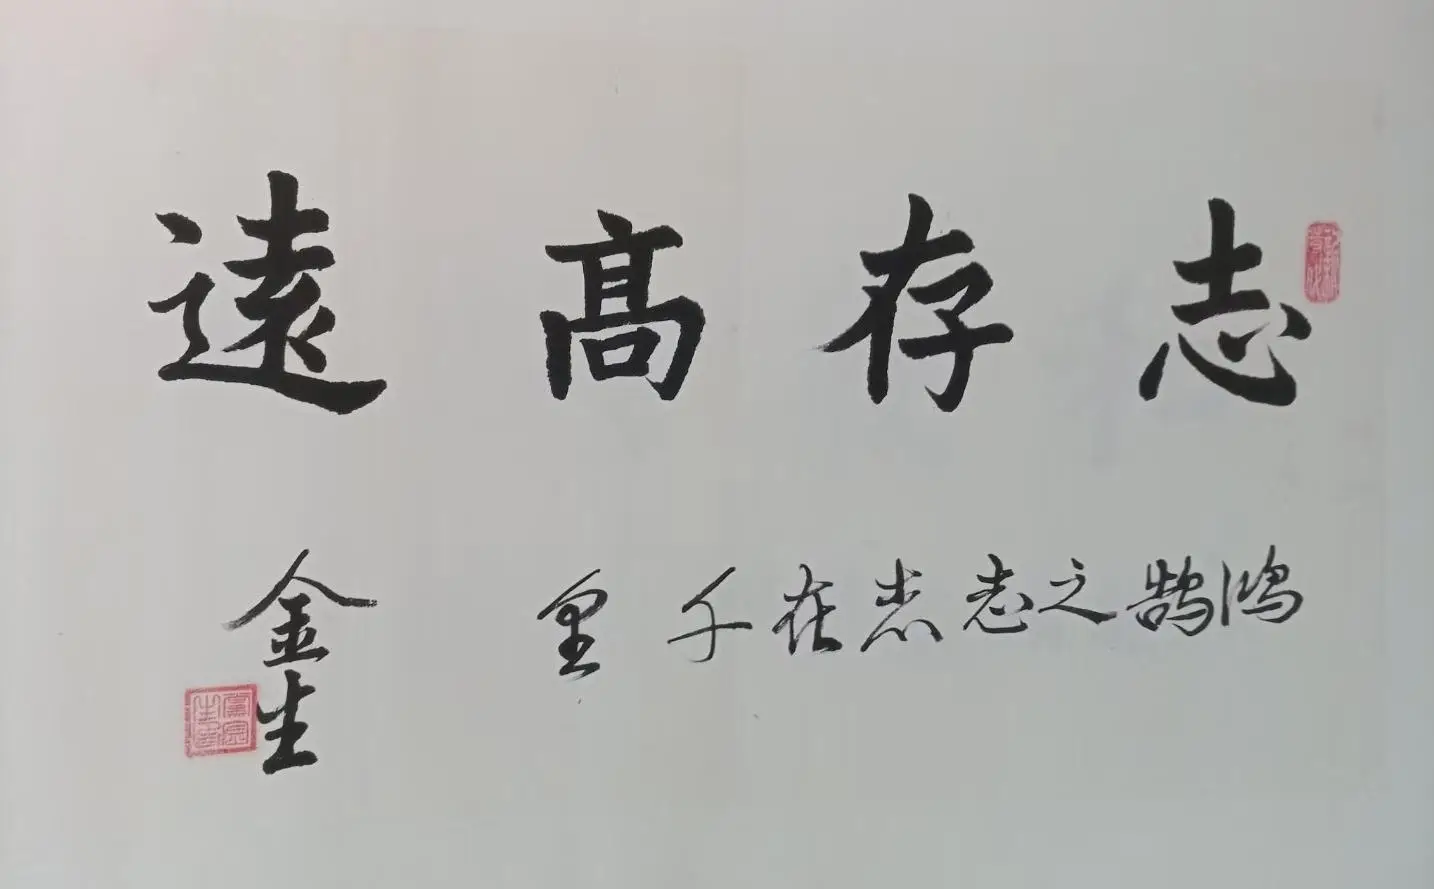 志存髙遠
鴻鵠之志志在千里
金生